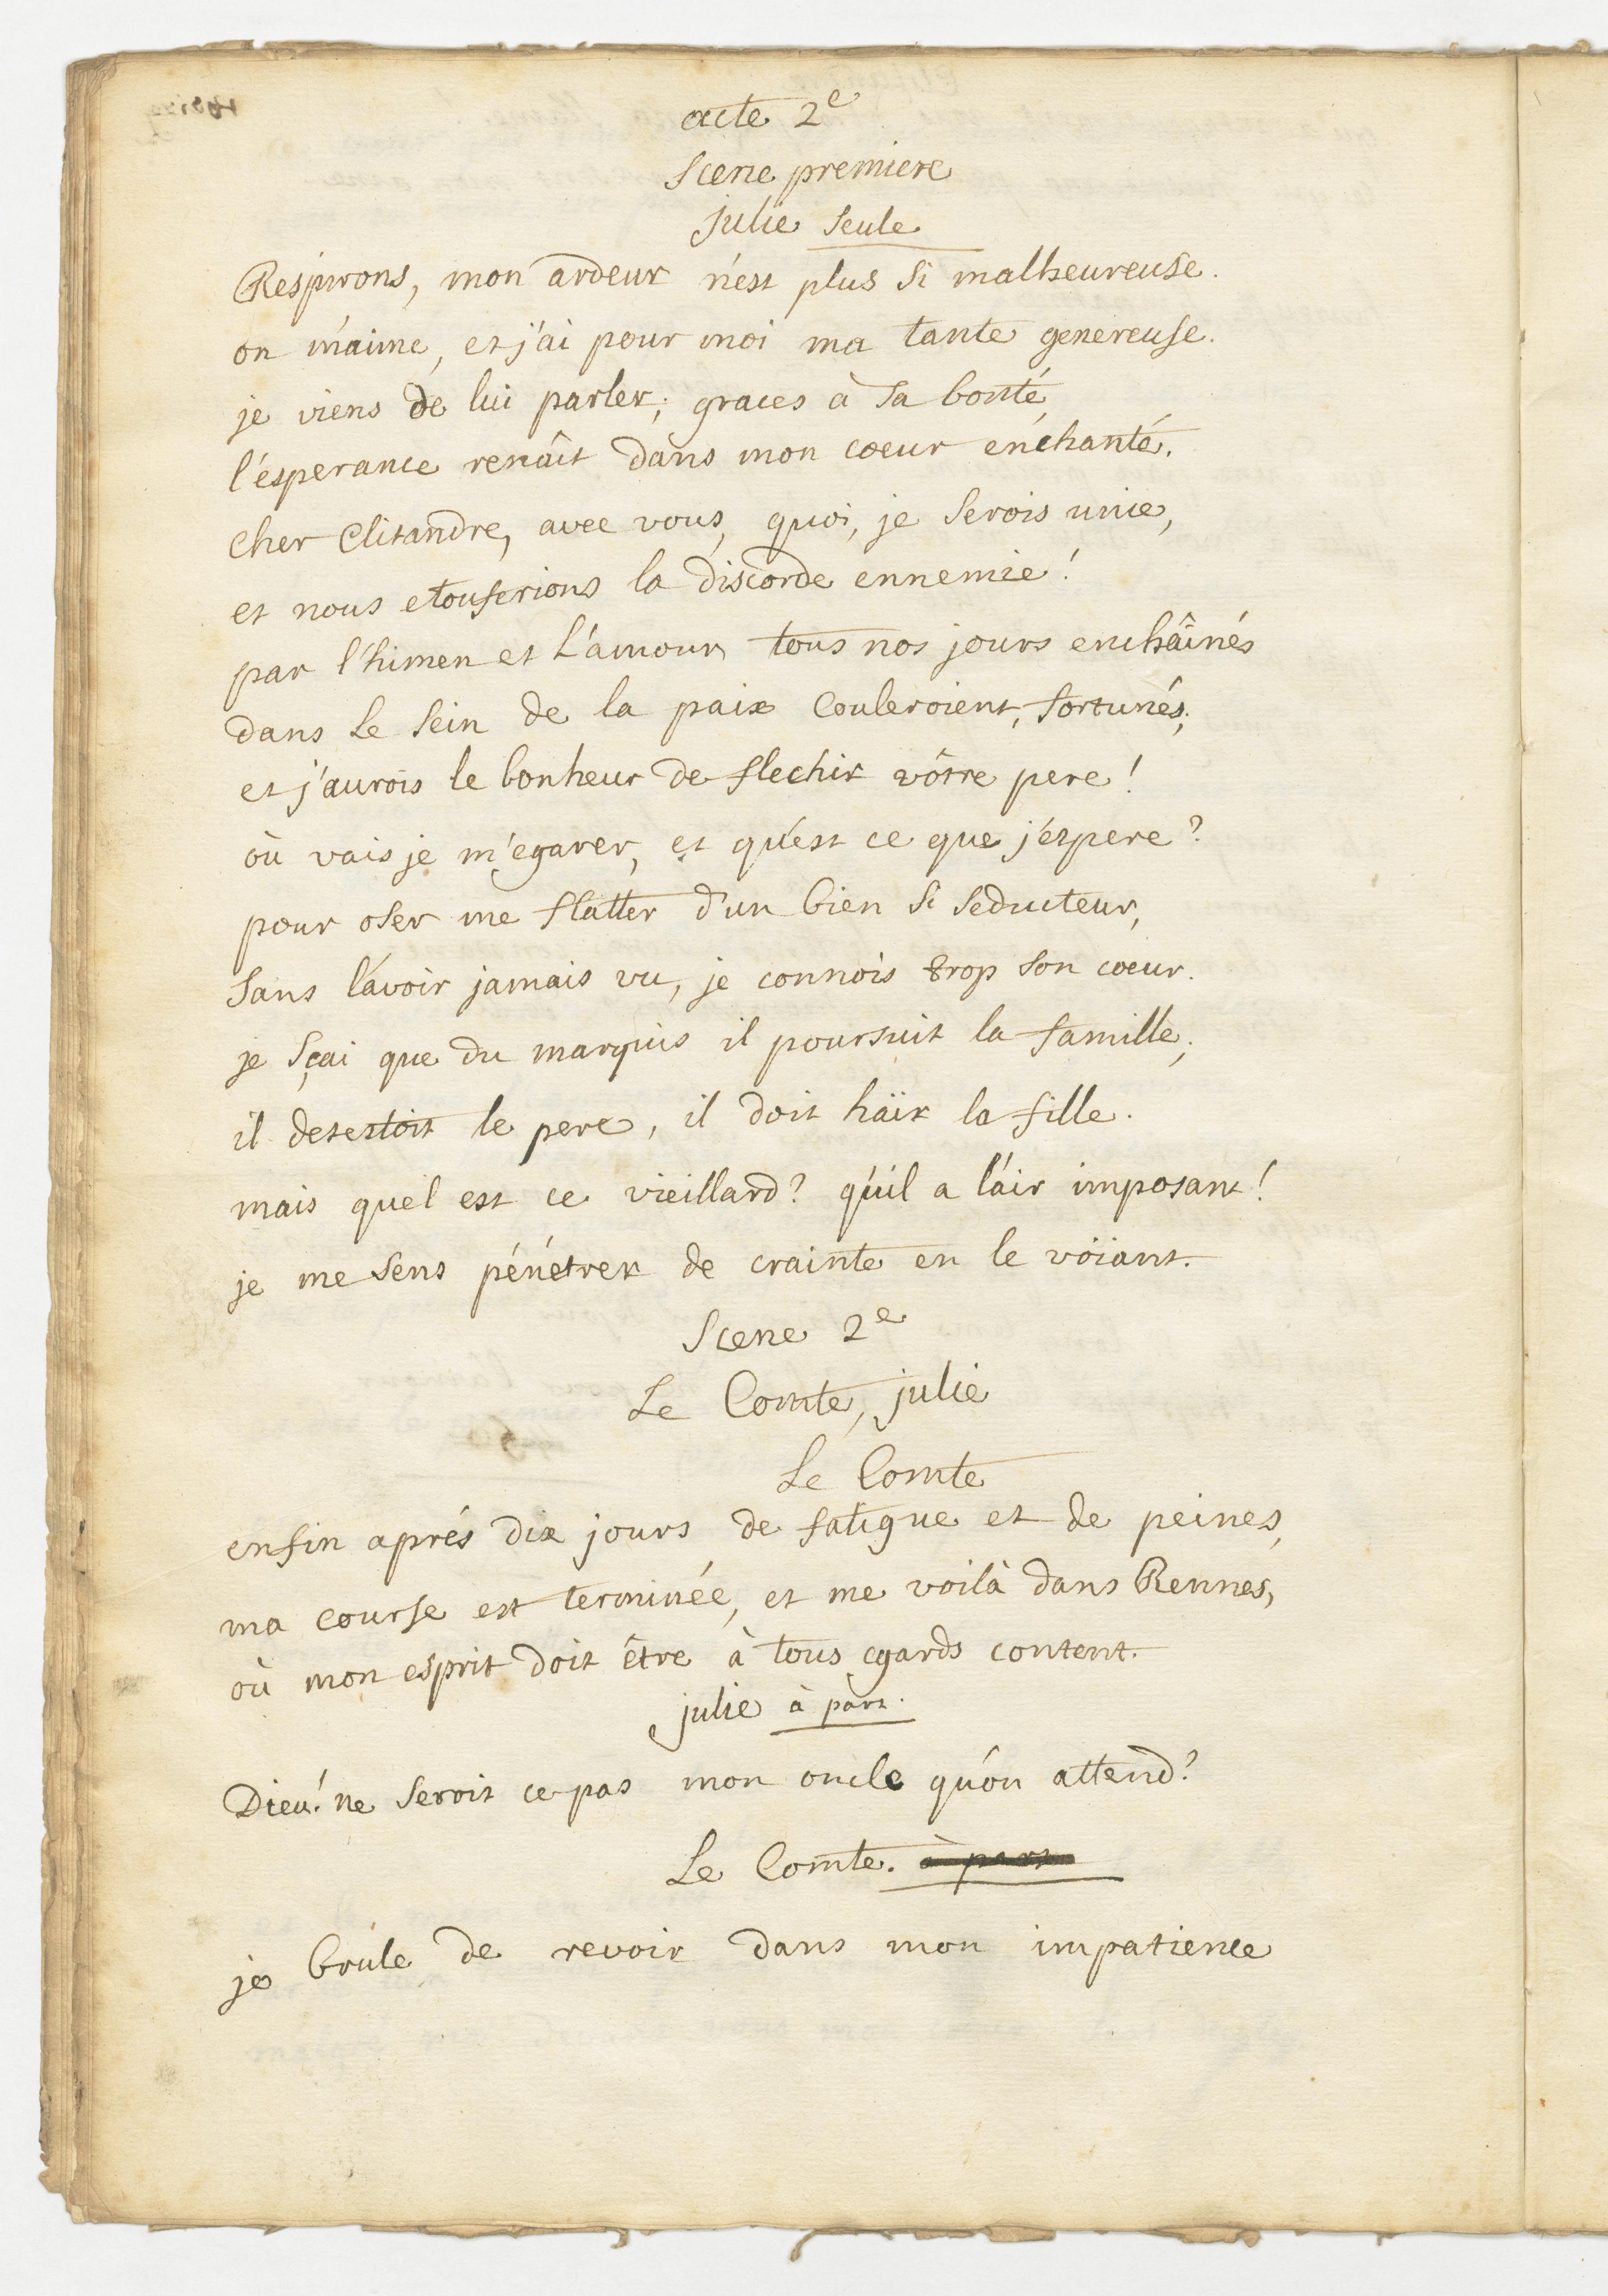 acte 2e
Scene premiere
julie seule
Respirons, mon ardeur n'est plus si malheureuse.
on m'aime, et j'ai pour moi ma tante genereuse.
je viens de lui parler; graces à sa bonté,
l'ésperance renâit dans mon coeur enchanté.
cher Clitandre, avec vous, quoi, je serois unie,
et nous etouferions la discorde ennemie!
par l'himen et L'amour tous nos jours enchâinés
dans le sein de la paix Couleroient, fortunés;
et j'aurois le bonheur de flechir vôtre pere!
où vais je m'egarer, et qu'est ce que j'espere?
pour oser me flatter d'un bien si seducteur,
sans l'avoir jamais vu, je connois trop son coeur.
je sçai que du marquis il poursuit la famille;
il detestoit le pere, il doit häir la fille.
mais quel est ce vieillard? qu'il a l'air imposant!
je me sens pénétrer de crainte en le vöiant.
Scene 2e
Le Comte, julie
Le Comte
enfin aprés dix jours de fatigue et de peines,
ma course est terminée, et me voilà dans Rennes,
où mon esprit doit être à tous egards content.
julie à part.
Dieu! ne seroit ce pas mon oncle qu'on attend?
Le Comte. à part
je brule de revoir dans mon impatience